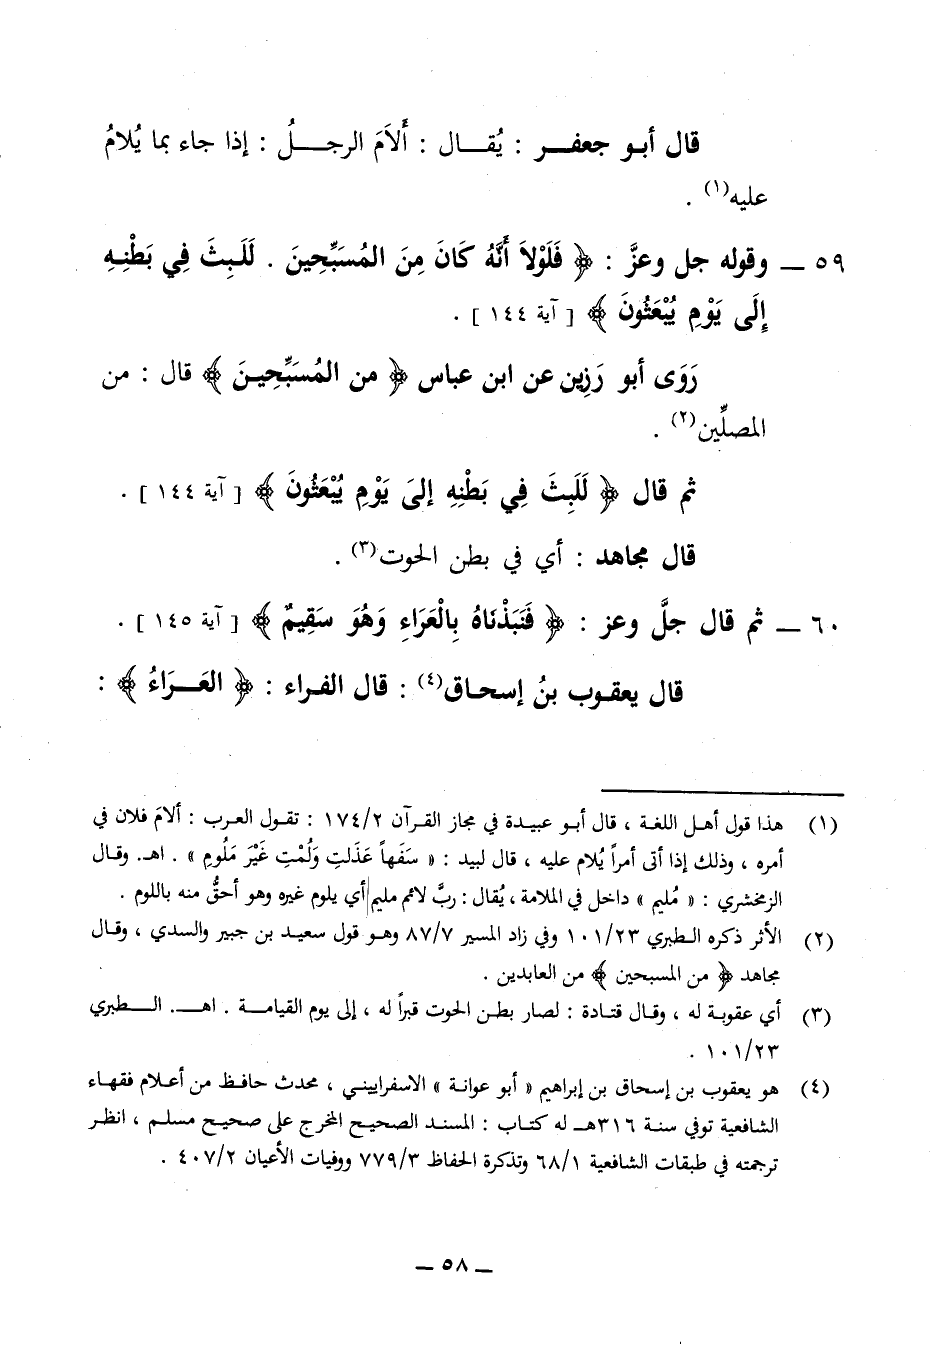 قال أبو جعفر : يُقال : أَلاَمَ الرجلُ : إذا جاء بما يُلامُ
عليه(١) .
٥٩ ــ وقوله جل وعزَّ : ﴿ فَلَوْلاَ أَنَّهُ كَانَ مِنَ المُسَبِّحِينَ . لَلَبِثَ فِي بَطْنِهِ
إِلَى يَوْمِ يُبْعَثُونَ ﴾ [ آية ١٤٤ ] .
رَوَى أبو رَزِين عن ابن عباس ﴿ من المُسَبِّحِينَ ﴾ قال : من
المصلِّين(٢) .
ثم قال ﴿ لَلَبِثَ فِي بَطْنِهِ إلىَ يَوْمِ يُبْعَثُونَ ﴾ [ آية ١٤٤ ] .
قال مجاهد : أي في بطن الحوت(٣) .
٦٠ ــ ثم قال جلَّ وعز : ﴿ فَنَبَذْنَاهُ بِالْعَرَاءِ وَهُوَ سَقِيمٌ ﴾ [ آية ١٤٥ ] .
قال يعقوب بنُ إسحاق(٤) : قال الفراء : ﴿ العَرَاءُ ﴾ :
(١) هذا قول أهل اللغة ، قال أبو عبيدة في مجاز القرآن ١٧٤/٢ : تقول العرب : ألامَ فلان في
أمره ، وذلك إذا أتى أمراً يُلام عليه ، قال لبيد : « سَفَهاً عَذَلتِ وَلُمْتِ غَيْرَ مَلُومِ » . اهـ. وقال
الزمخشري : « مُليم » داخل في الملامة ، يُقال : ربَّ لائم مليم أي يلوم غيره وهو أحقُّ منه باللوم .
(٢) الأثر ذكره الطبري ١٠١/٢٣ وفي زاد المسير ٨٧/٧ وهو قول سعيد بن جبير والسدي ، وقال
مجاهد ﴿ من المسبحين ﴾ من العابدين .
(٣) أي عقوبة له ، وقال قتادة : لصار بطن الحوت قبراً له ، إلى يوم القيامة . اهـ. الطبري
١٠١/٢٣ .
(٤) هو يعقوب بن إسحاق بن إبراهيم « أبو عوانة » الاسفراييني ، محدث حافظ من أعلام فقهاء
الشافعية توفي سنة ٣١٦هـ له كتاب : المسند الصحيح المخرج على صحيح مسلم ، انظر
ترجمته في طبقات الشافعية ٦٨/١ وتذكرة الحفاظ ٧٧٩/٣ ووفيات الأعيان ٤٠٧/٢ .
ــ ٥٨ ــ